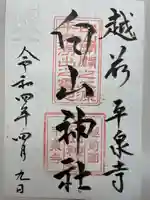 越前 平泉寺
白山神社
令和四年四月九日